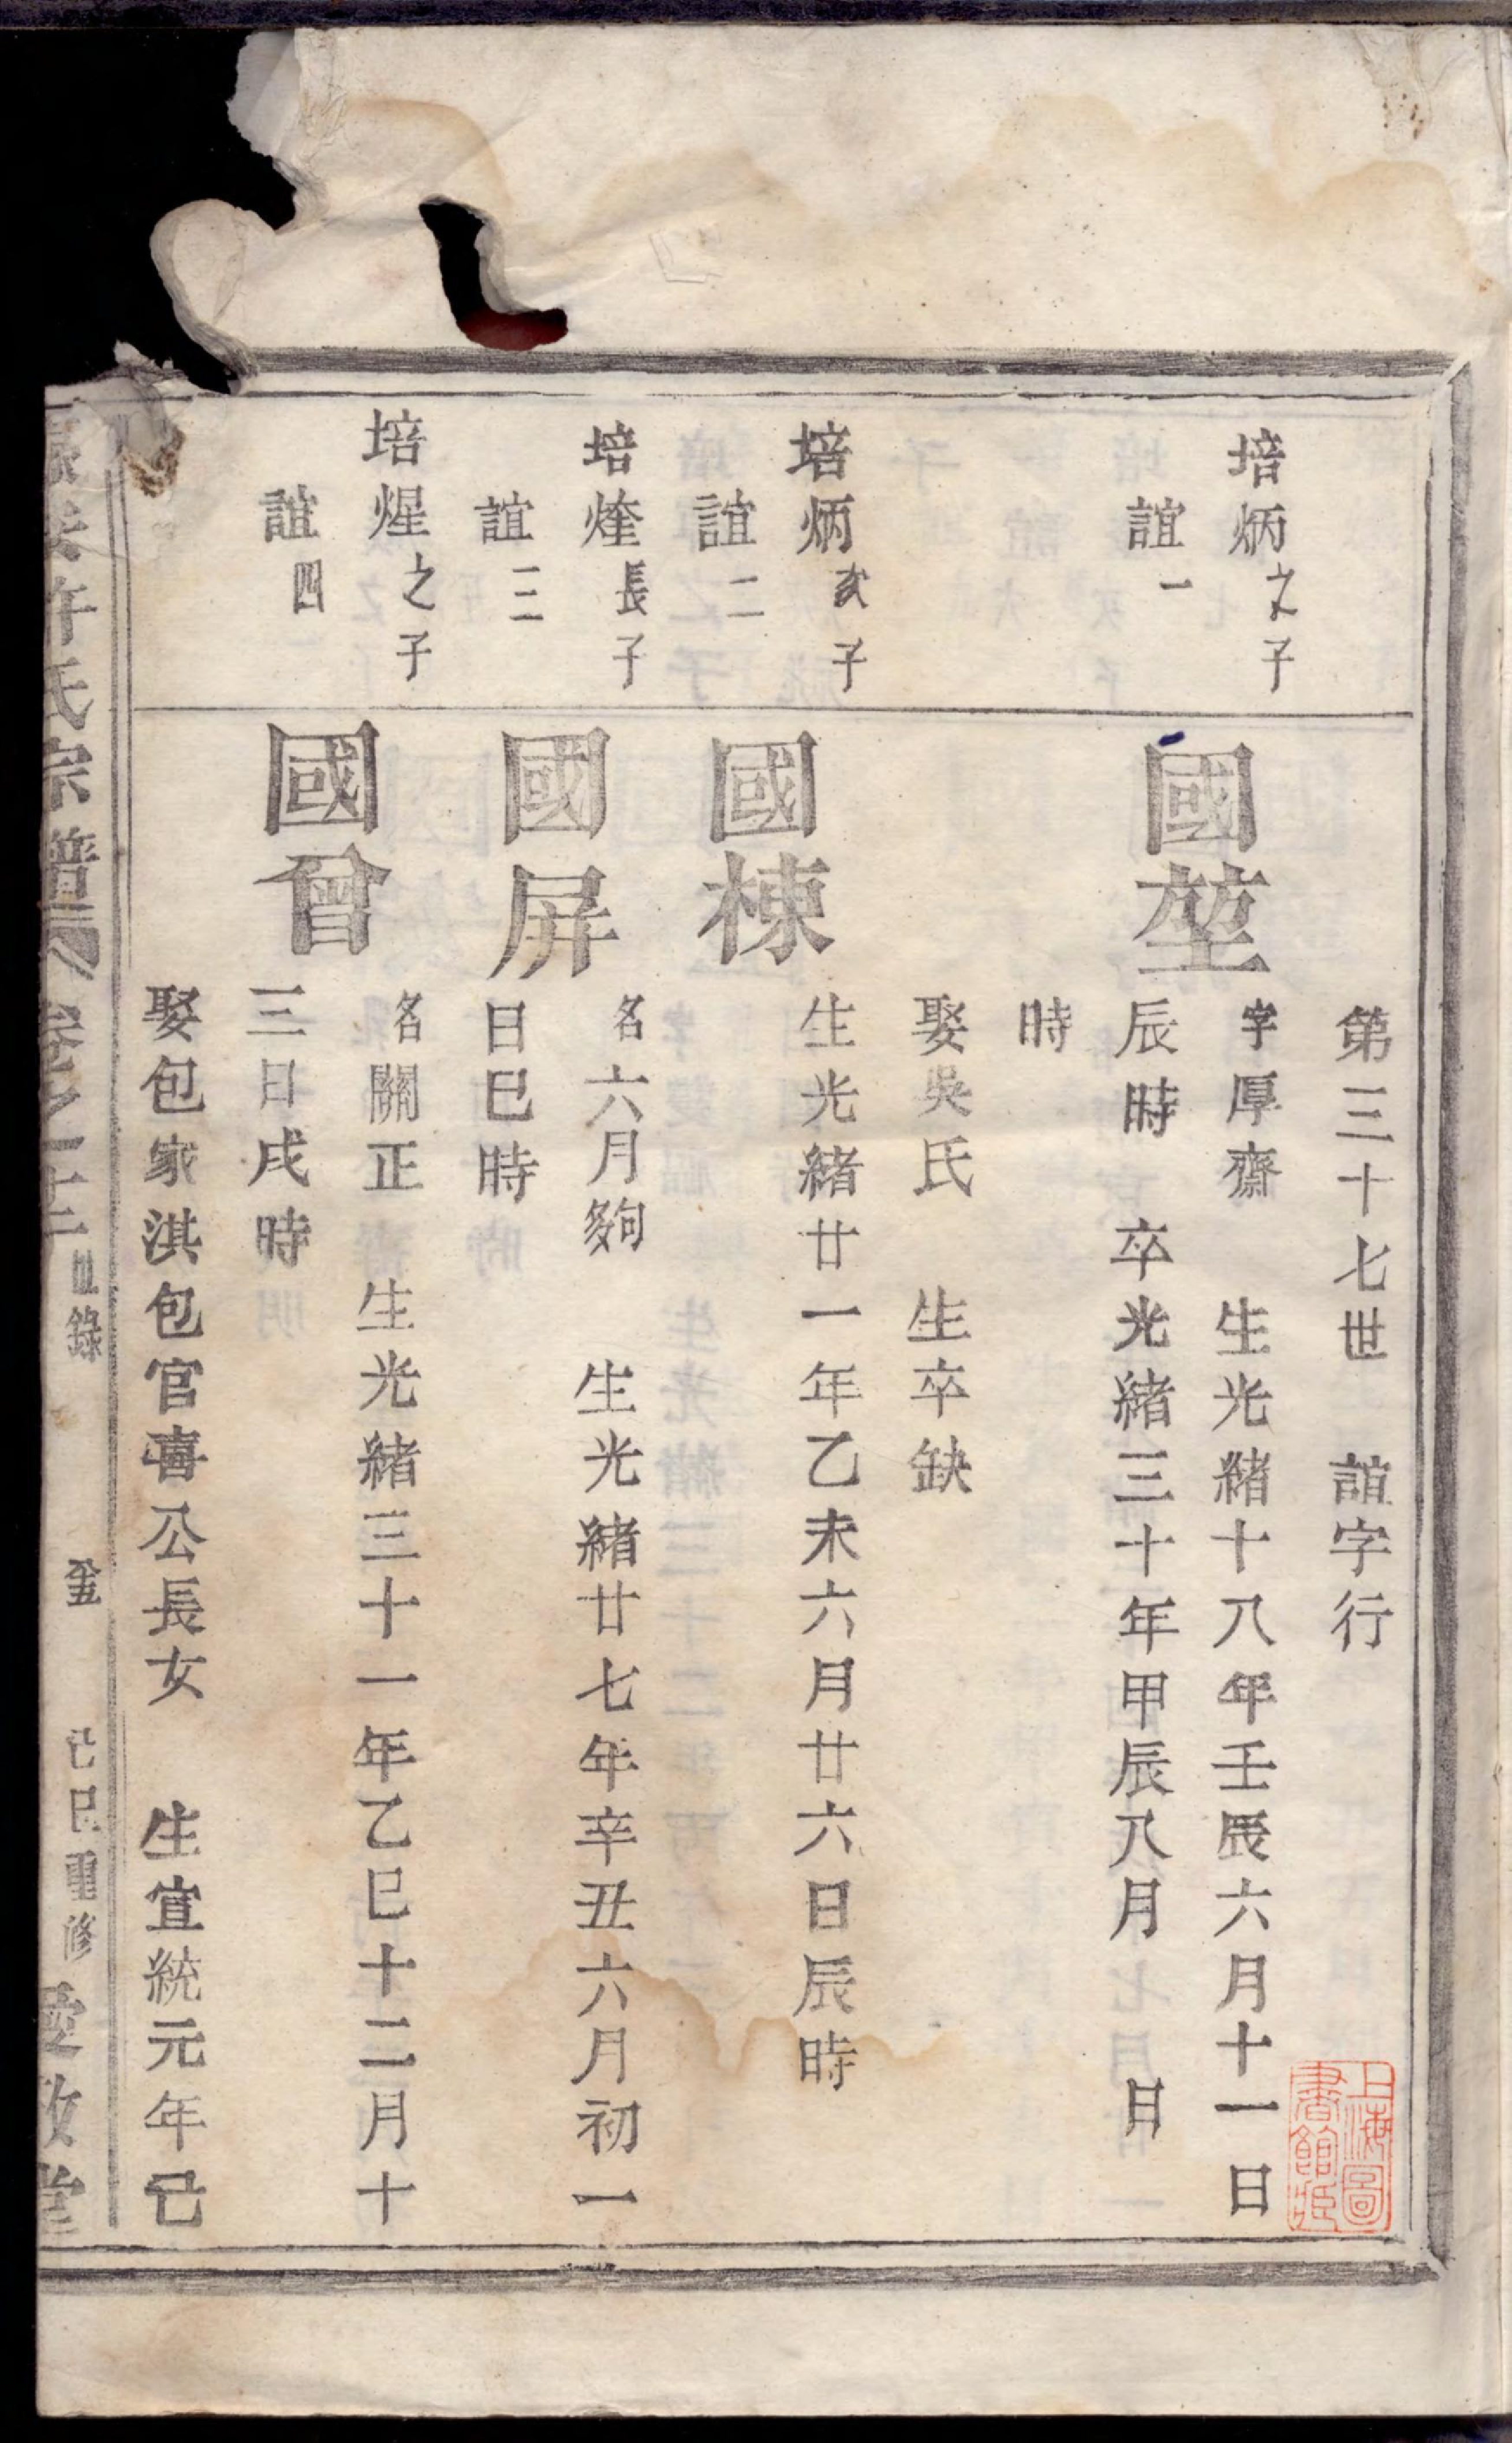 第三十七世 誼字行
培炳之子
誼一
國堃
字厚齋 生光緒十八年壬辰六月十一日
辰時 卒光緒三十年甲辰八月 日
時
娶吳氏 生卒缺
培炳次子
誼二
國棟
生光緒廿一年乙未六月廿六日辰時
培煃長子
誼三
國屏
名六月夠 生光緒廿七年辛丑六月初一
日巳時
培煋之子
誼四
國曾
名關正 生光緒三十一年乙巳十二月十
三日戌時
娶包家淇包官喜公長女 生宣統元年己
許氏宗譜 卷之十三 目錄 己巳重修 愛敬堂
上海圖
書館藏